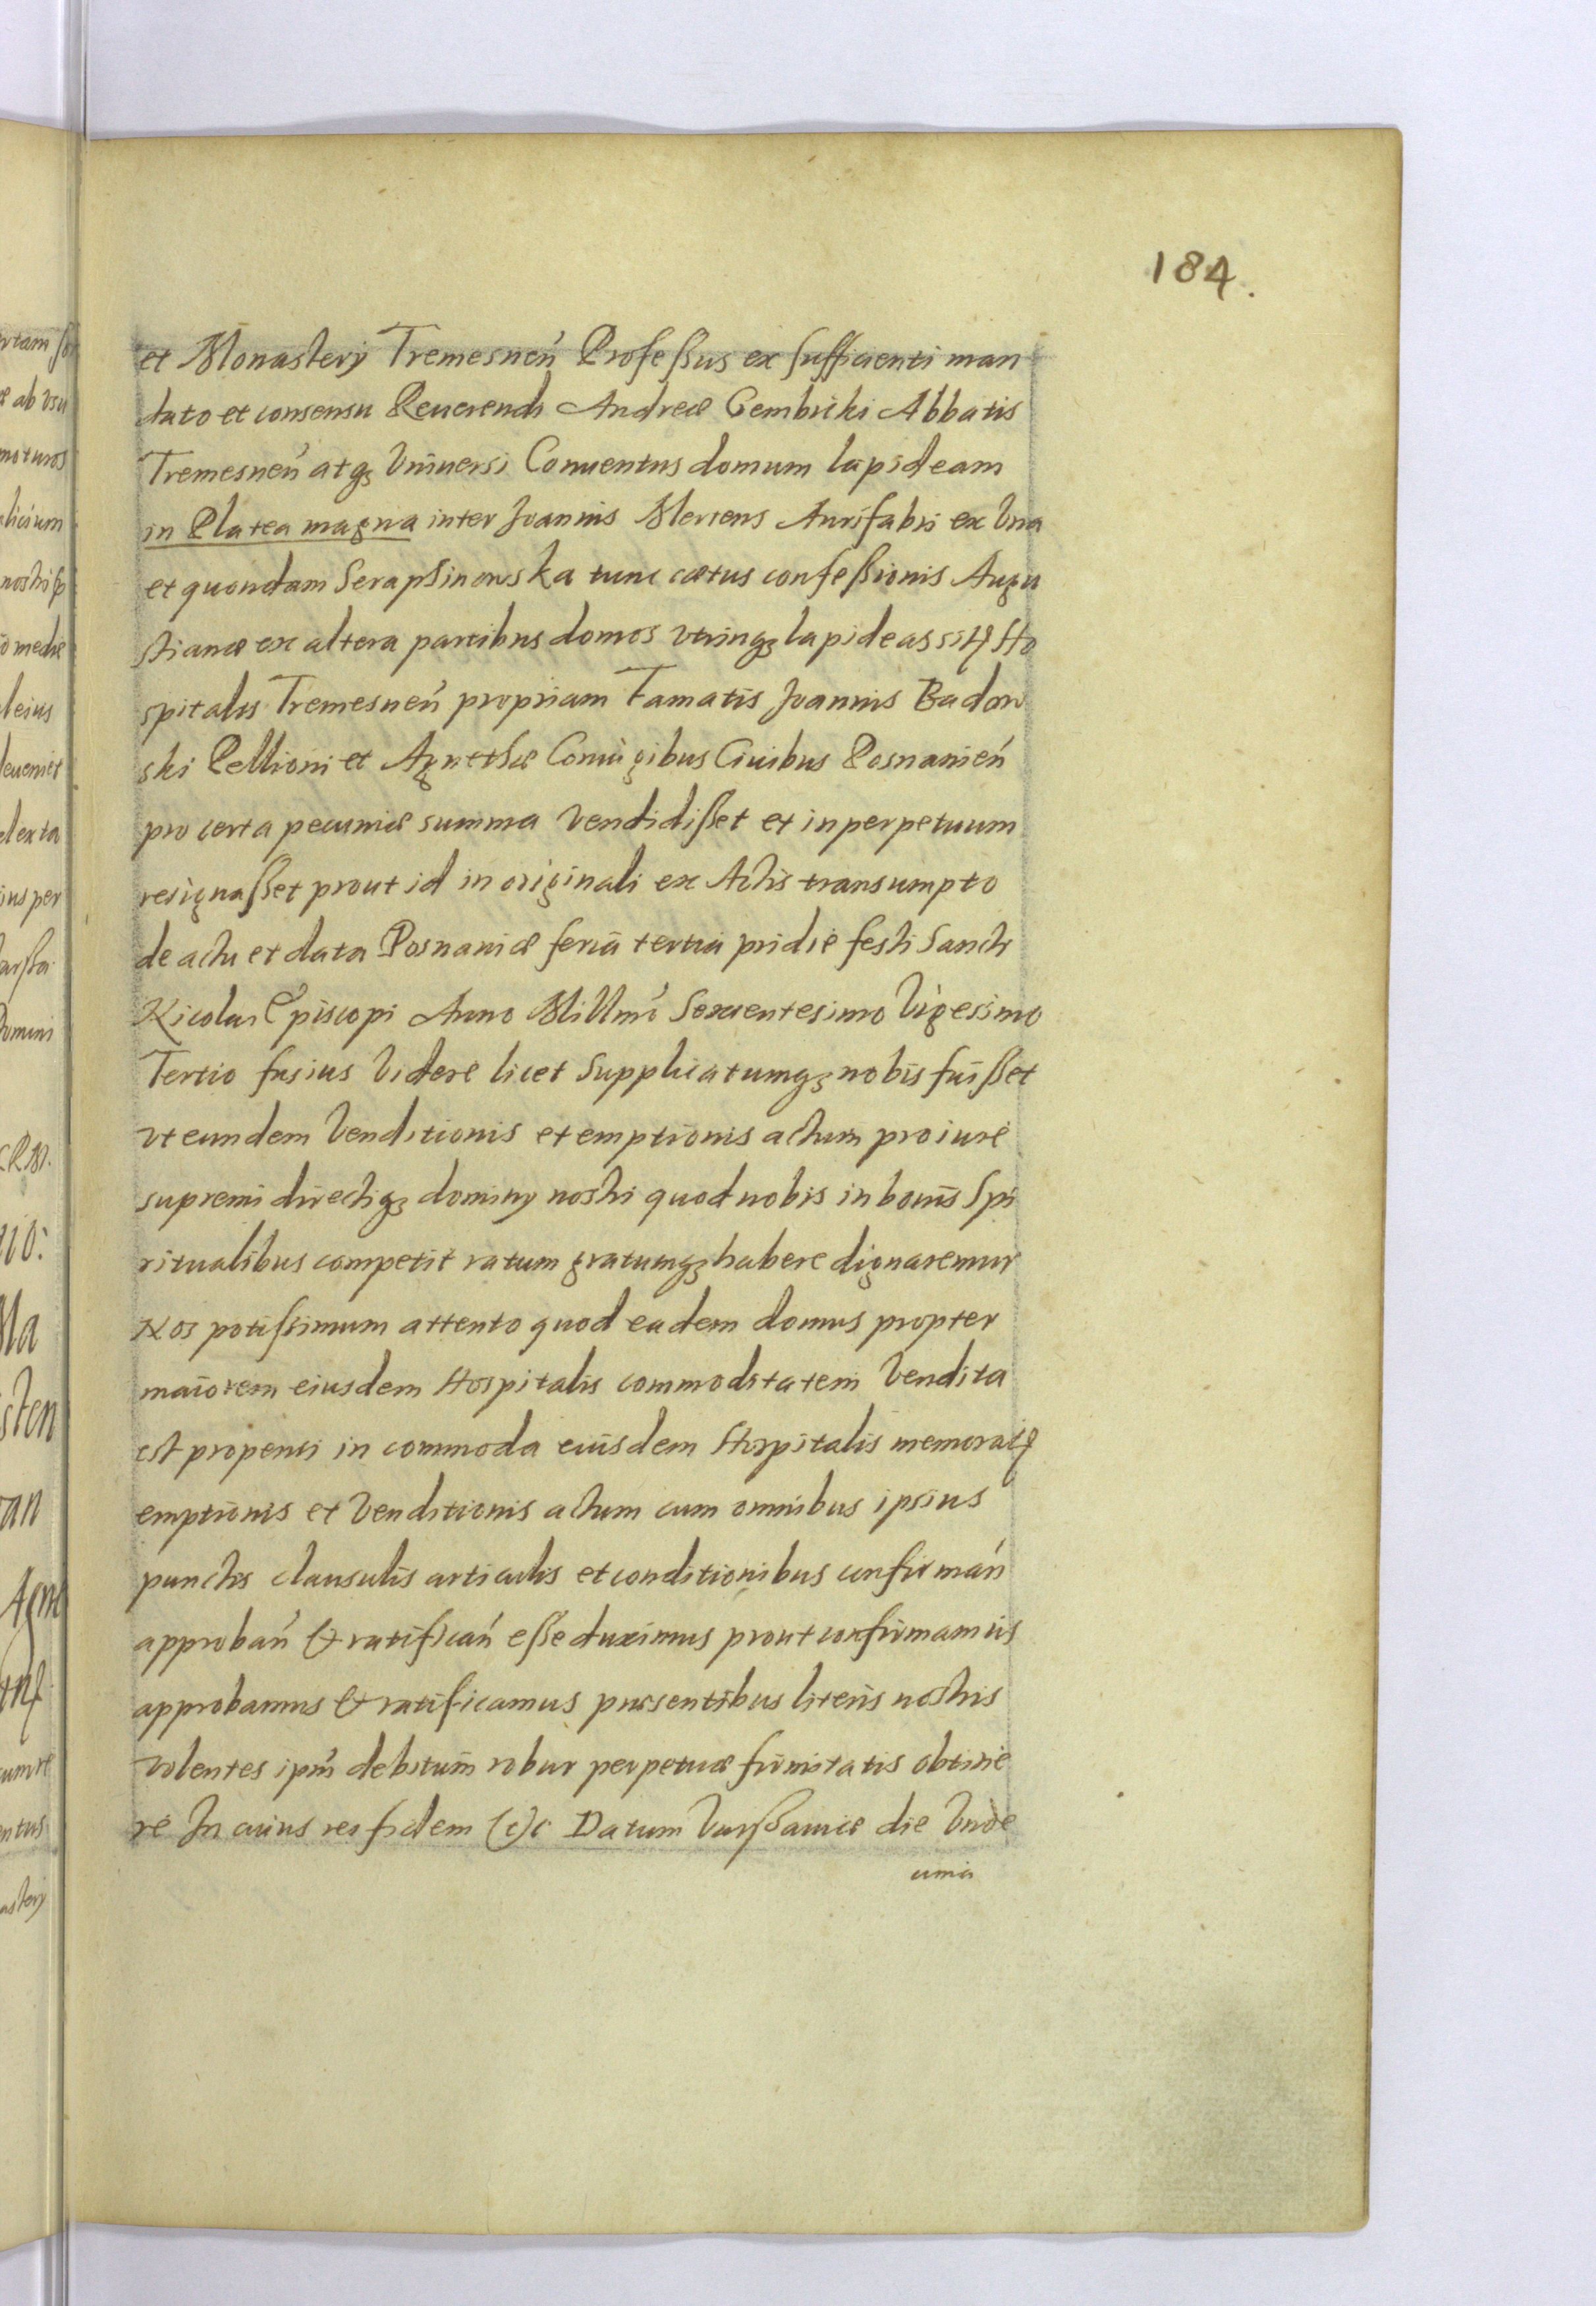 184.
et Monastery Tremesneń Profeßus ex sufficienti man
dato et consensu Reuerendi Andreæ Gembicki Abbatis
Tremesneń atq₃ Vniuersi Conuentus domum lapideam
in Platea magna inter Joannis Mertens Aurifabri ex Vna
et quondam Seraphinowska tunc cætus confeßionis Augu
stianæ ex altera partibus domos vtrinq₃ lapideas sitꝗ Ho
spitalis Tremesneń propriam Famatis Joannis Badow
ski Pellioni et Agnethæ Coniugibus Ciuibus Posnanień
pro certa pecuniæ summa Vendidißet et in perpetuum
resignaßet prout id in originali ex Actis transumpto
de actu et data Posnaniæ feria tertia pridie festi Sancti
Nicolai Episcopi Anno Millmo Sexcentesimo Vigesimo
Tertio fusius Videre licet Supplicatumq₃ nobis fuißet
vt eundem Venditionis et emptionis actum pro iure
supremi directiq₃ dominy nostri quod nobis in bonis Spi
ritualibus competit ratum gratumq₃ habere dignaremur
Nos potissimum attento quod eadem domus propter
maiorem eiusdem Hospitalis commoditatem Vendita
est propensi in commoda eiusdem Hospitalis memoratꝗ
emptionis et Venditionis actum cum omnibus ipsius
punctis clausulis articulis et conditionibus confirmań
approbań & ratificań eße duximus prout confirmamus
approbamus & ratificamus præsentibus literis nostris
volentes ipm debitum robur perpetuæ firmitatis obtine
re In cuius rei fidem (c)c Datum Varßauiæ die Vnde
cima